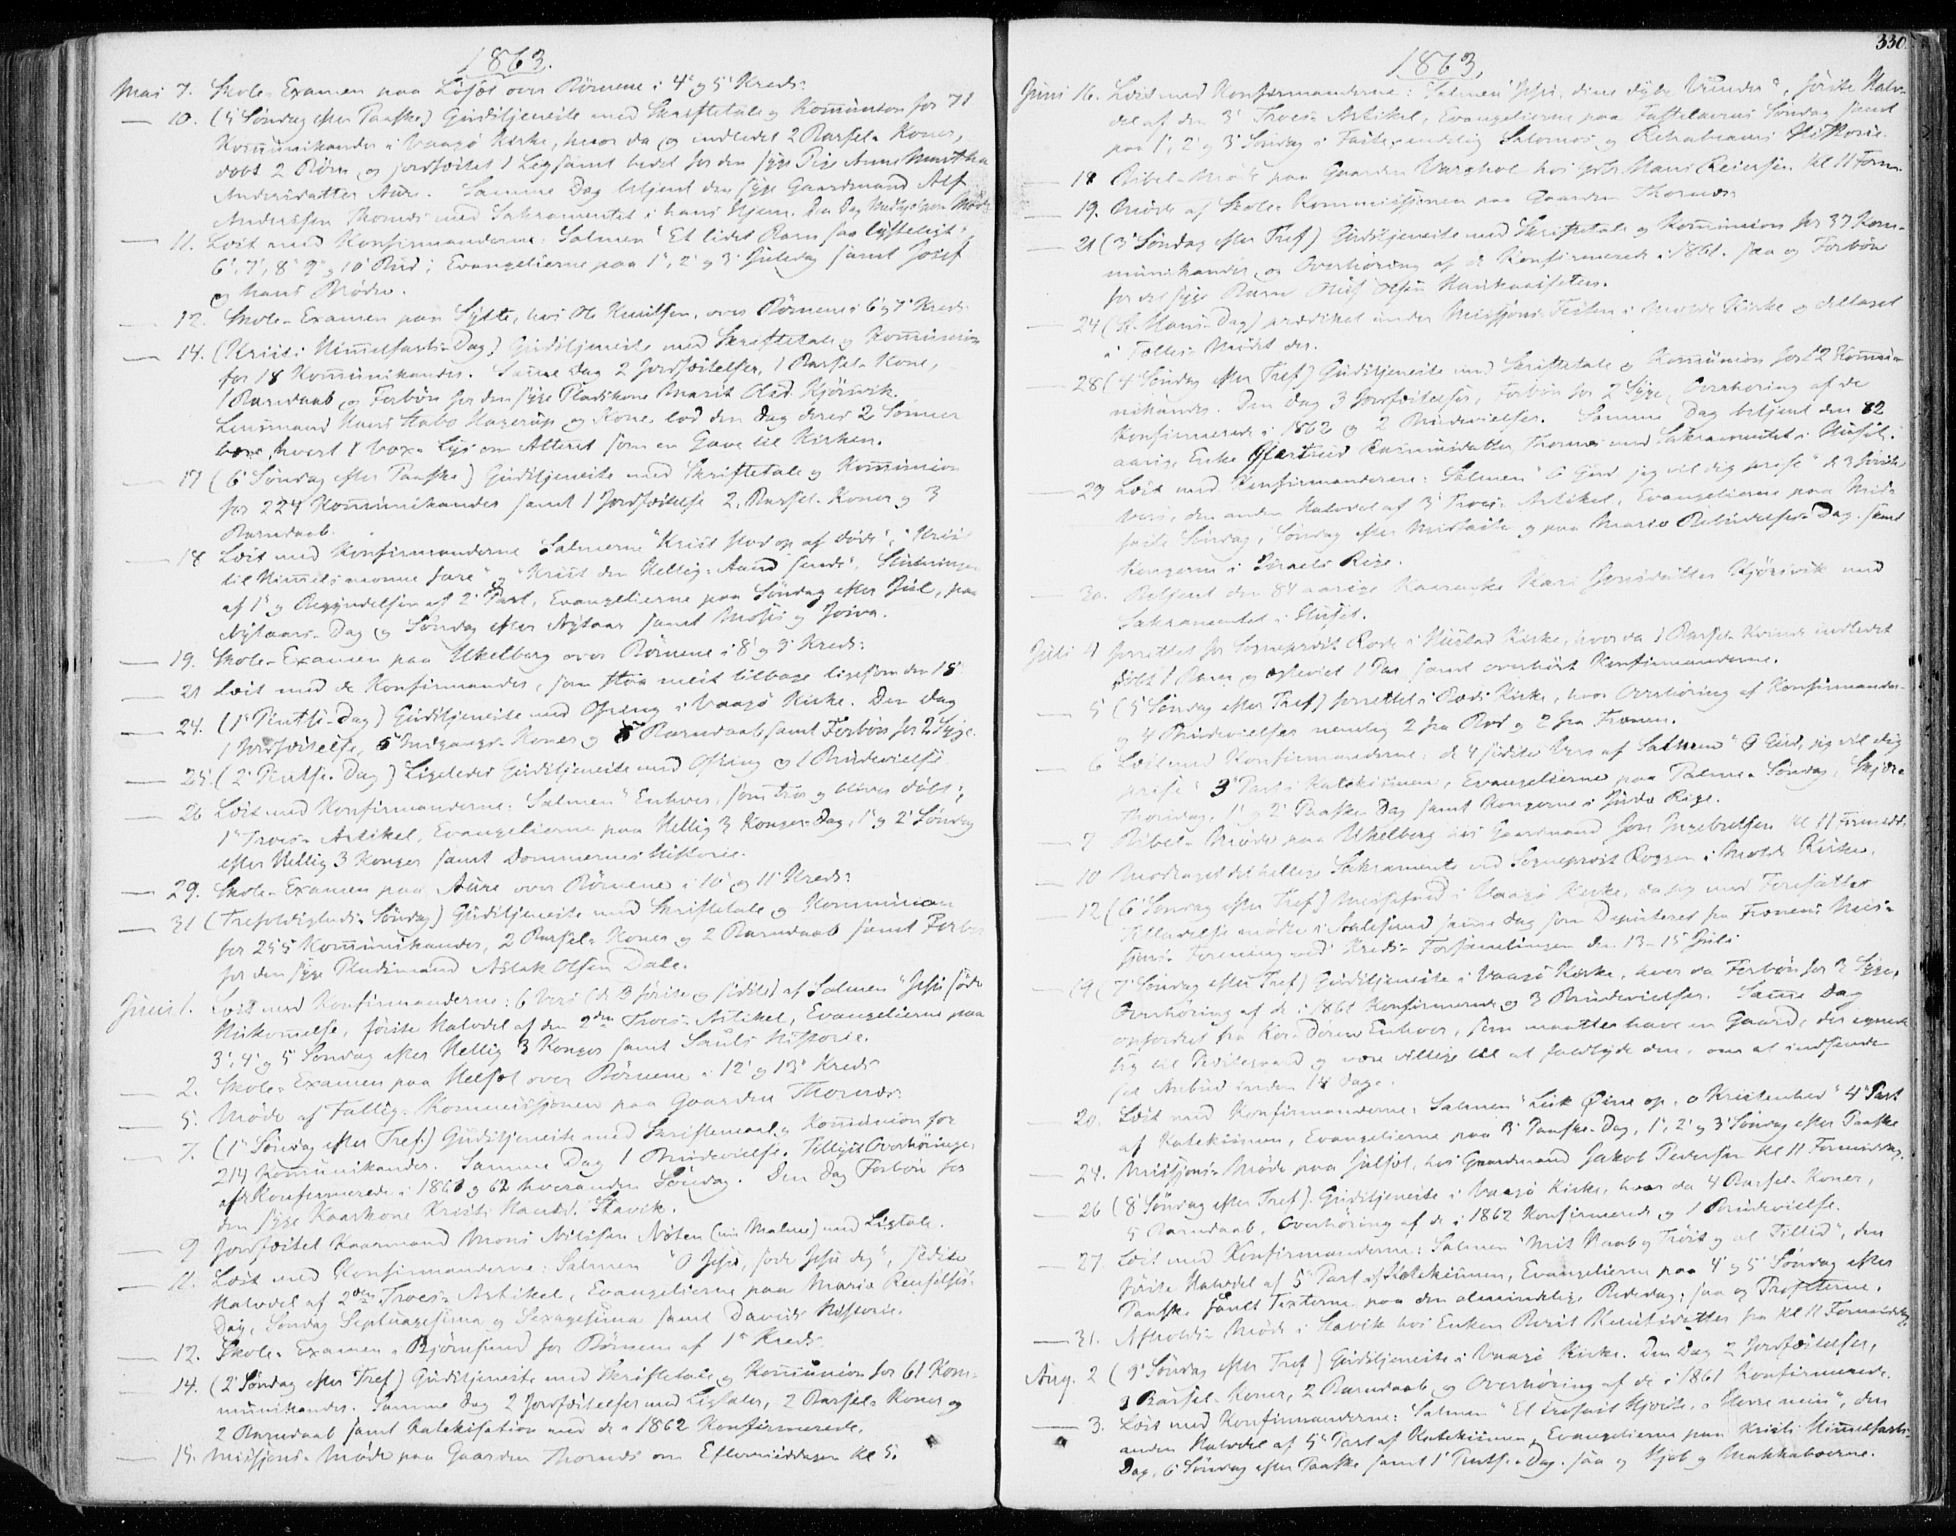 1863.
Mai 7. Skole-Examen paa Løset over Børnene i 4' og 5' Kreds.
— 10. (5' Søndag efter Paaske) Gudstjeneste med Skriftetale og Kommunion for 71
Kommunikanter i Vaagø Kirke, hvor da og indledet 2 Barsel-Koner,
døbt 2 Børn og jordfæstet 1 Lig samt bedet for den syge Pige Anne Martha
Andersdatter Aure. Samme Dag betjent den syge Gaardmand Alf
Anderssen Thornæs med Sakramentet i hans Hjem.
— 11. Læst med Konfirmanderne: Salmen "Et lidet Barn saa lysteligt",
6', 7', 8' 9' og 10' Bud; Evangelierne paa 1', 2' og 3' Juledag samt Josef
og hans Brødre.
— 12. Skole-Examen paa Sylte, hos Ole Knutsen, over Børnene i 6' og 7' Kreds.
— 14. (Kristi Himmelfarts-Dag) Gudstjeneste med Skriftetale og Kommunion
for 18 Kommunikanter. Samme Dag 2 Jordfæstelser, 1 Barsel-Kone,
1 Barndaab og Forbøn for den syge Pladskone Marit Olsd. Kjørsvik.
Lensmand Hans Stabo Hagerup og Kone lod den Dag deres 2 Sønner
bære hvert 1 Vox-Lys om Alteret som en Gave til Kirken.
— 17 (6' Søndag efter Paaske) Gudstjeneste med Skriftetale og Kommunion
for 224 Kommunikanter samt 1 Jordfæstelse 2 Barsel-Koner og 3
Barndaab.
— 18 Læst med Konfirmanderne Salmerne "Krist stod op af døde", "Krist
til Himmels monne fare" og "Krist den Hellig-Aand sende", Slutningen
af 1' og Begyndelsen af 2' Part, Evangelierne paa Søndag efter Jul, paa
Nytaars-Dag og Søndag efter Nytaar samt Moses og Josva.
— 19. Skole-Examen paa Ukelberg over Børnene i 8' og 9' Kreds.
— 21 Læst med de Konfirmander, som staa mest tilbage ligesom den 18'
— 24. (1' Pintse-Dag) Gudstjeneste med Ofring i Vaagø Kirke. Den Dag
1 Jordfæstelse, 5 Indgangs-Koner og 5 Barndaab samt Forbøn for 2 Syge.
— 25. (2' Pintse-Dag) Ligeledes Gudstjeneste med Ofring og 1 Brudevielse
— 26 Læst med Konfirmanderne: Salmen "Enhver, som tror og bliver døbt",
1' Troes-Artikel, Evangelierne paa Hellig 3 Konger-Dag, 1' og 2' Søndag
efter Hellig 3 Konger samt Dommernes Historie.
— 29. Skole-Examen paa Aure over Børnene i 10' og 11' Kreds.
— 31 (Trefoldigheds-Søndag) Gudstjeneste med Skriftetale og Kommunion
for 255 Kommunikanter, 2 Barsel-Koner og 2 Barndaab samt Forbøn
for den syge Pladsmand Aslak Olsen Dale.
Juni 1. Læst med Konfirmanderne: 6 Vers (de 3 første og sidste) af Salmen "Jesu søde
Hukommelse, første Halvdel af den 2den Troes-Artikel, Evangelierne paa
3', 4' og 5' Søndag efter Hellig 3 Konger samt Sauls Historie.
— 2. Skole-Examen paa Helsøt over Børnene i 12' og 13' Kreds
— 5. Møde af Fattig-Kommissionen paa Gaarden Thornæs.
— 7. (1' Søndag efter Tref.) Gudstjeneste med Skriftemaal og Kommunion for
214 Kommunikanter. Samme Dag 1 Brudevielse. Tillyst Overhøring
af de Konfirmerede i 1861 og 62 hveranden Søndag. Den Dag Forbøn for
den syge Kaarkone Kristi Hansd. Stavik.
— 9 Jordfæstet Kaarmand Mons Nilssen Nøten (fra Malme) med Ligtale.
— 11. Læst med Konfirmanderne: Salmen "O Jesu, søde Jesu dig", sidste
Halvdel af 2den Troes-Artikel, Evangelierne paa Mariæ Renselses-
Dag, Søndag Septuagesima og Sexagesima samt Davids Historie.
— 12. Skole-Examen i Bjørnsund for Børnene af 1' Kreds
— 14. (2' Søndag efter Tref) Gudstjeneste med Skriftetale og Kommunion for 61 Kom-
munikanter. Samme Dag 2 Jordfæstelser med Ligtaler, 2 Barsel-Koner og
2 Barndaab samt Katekisation med de i 1862 Konfirmerede.
— 15. Missions-Møde paa Gaarden Thornæs om Eftermiddagen Kl 5.
330.
1863.
Juni 16. Læst med Konfirmanderne: Salmen "Jesu, dine dybe Vunder", første Halv-
del af den 3' Troes-Artikel, Evangelierne paa Fastelavns Søndag samt
paa 1', 2' og 3' Søndag i Faste, endelig Salomos og Rehabeams Historie.
— 18 Bibel-Møde paa Gaarden Varghol hos Hans Reiersen Kl 11 Form.
— 19. Møde af Skole-Kommissionen paa Gaarden Thornæs
— 21 (3' Søndag efter Tref) Gudstjeneste med Skriftetale og Kommunion for 37 Kom-
munikanter, og Overhøring af de Konfirmerede i 1861. saa og Forbøn
for det syge Barn Oluf Olsen
— 24 (St. Hans-Dag) prædiket under Missions-Festen i Molde Kirke og deltaget
i Fælles-Mødet der.
— 28 (4' Søndag efter Tref) Gudstjeneste med Skriftetale og Kommunion for 12 Kommu-
nikanter. Den Dag 3 Jordfæstelser, Forbøn for 2 Syge, Overhøring af de
Konfirmerede i 1862 og 2 Brudevielser. Samme Dag betjent den 82
aarige Enke Gjertrud Rasmusdatter Thornæs med Sakramentet i Huset.
— 29 Læst med Konfirmanderne: Salmen "O Gud jeg vil dig prise" de 3 første
Vers, den anden Halvdel af 3' Troes-Artikel, Evangelierne paa Mid-
faste Søndag, Søndag efter Midfaste og paa Mariæ Bebudelses-Dag. samt
Kongerne i Israels Rige.
— 30. Betjent den 84 aarige Kaarenke Kari Jonsdatter Kjørsvik med
Sakramentet i Huset.
Juli 4 forrettet for Sogneprest Rode i Hustad Kirke, hvor da 1 Barsel-Kvinde indledet
døbt 1 Barn og ægteviet 1 Par samt overhørt Konfirmanderne.
— 5 (5' Søndag efter Tref) forrettet i Bods Kirke, hvor Overhøring af Konfirmander
og 4 Brudevielser nemlig 2 fra Bod og 2 fra Frænen.
— 6 Læst med Konfirmanderne: de 4 sidste Vers af Salmen "O Gud, jeg vil dig
prise" 3' Part i Katekismen, Evangelierne paa Palme-Søndag, Skjær-
Thorsdag, 1' og 2' Paaske-Dag samt Kongerne i Juda Rige.
— 7 Bibel-Møde paa Ukelberg hos Gaardmand Jon Ingebretsen Kl 11 Formidd.
— 10 Modtaget det hellige Sakramente ved Sogneprest Roggen i Molde Kirke.
— 12 (6' Søndag efter Tref) Messefald i Vaagø Kirke, da jeg med Foresattes
Tilladelse mødte i Aalesund samme Dag som Deputeret fra Frænens Mis-
sions-Forening ved Kreds-Forsamlingen den 13-15 Juli
— 19 (7' Søndag efter Tref) Gudstjeneste i Vaagø Kirke, hvor da Forbøn for 2 Syge,
Overhøring af de i 1861 Konfirmerede og 3 Brudevielser. Samme Dag
opfordret fra Kor-Døren Enhver, som maatte have en Gaard, der egnede
sig til Distriktsgaard og være villige til at fradlyde den, om at indsende
sit Anbud inden 14 Dage.
— 20. Læst med Konfirmanderne: Salmen "Luk Øine op, o Kristenhed" 4' Part
af Katekismen, Evangelierne paa 3' Paaske-Dag, 1', 2' og 3' Søndag efter Paaske
— 24. Missions-Møde paa Julset, hos Gaardmand Jakob Pedersen Kl 11 Formiddag.
— 26 (8' Søndag efter Tref). Gudstjeneste i Vaagø Kirke, hvor da 4 Barsel-Koner,
5 Barndaab, Overhøring af de i 1862 Konfirmerede og 1 Brudevielse.
— 27. Læst med Konfirmanderne: Salmen "Mit Haab og Trøst og al Tillid", den
første Halvdel af 5' Part af Katekismen, Evangelierne paa 4' og 5' Søndag efter
Paaske samt Texterne paa den almindelige Bededag; saa og Profeterne.
— 31. Afholds-Møde i Stavik hos Enken Berit Knutsdatter fra Kl 11 Formiddag
Aug. 2 (9' Søndag efter Tref) Gudstjeneste i Vaagø Kirke. Den Dag 2 Jordfæstelser,
3 Barsel-Koner, 2 Barndaab og Overhøring af de i 1861 Konfirmerede.
— 3. Læst med Konfirmanderne: Salmen "Et trofast Hjerte, o Herre min", den
anden Halvdel af 5' Part af Katekismen, Evangelierne paa Kristi Himmelfarts-
Dag, 6' Søndag efter Paaske samt 1' Pintse-Dag. saa og Hjob og Makkabæerne.